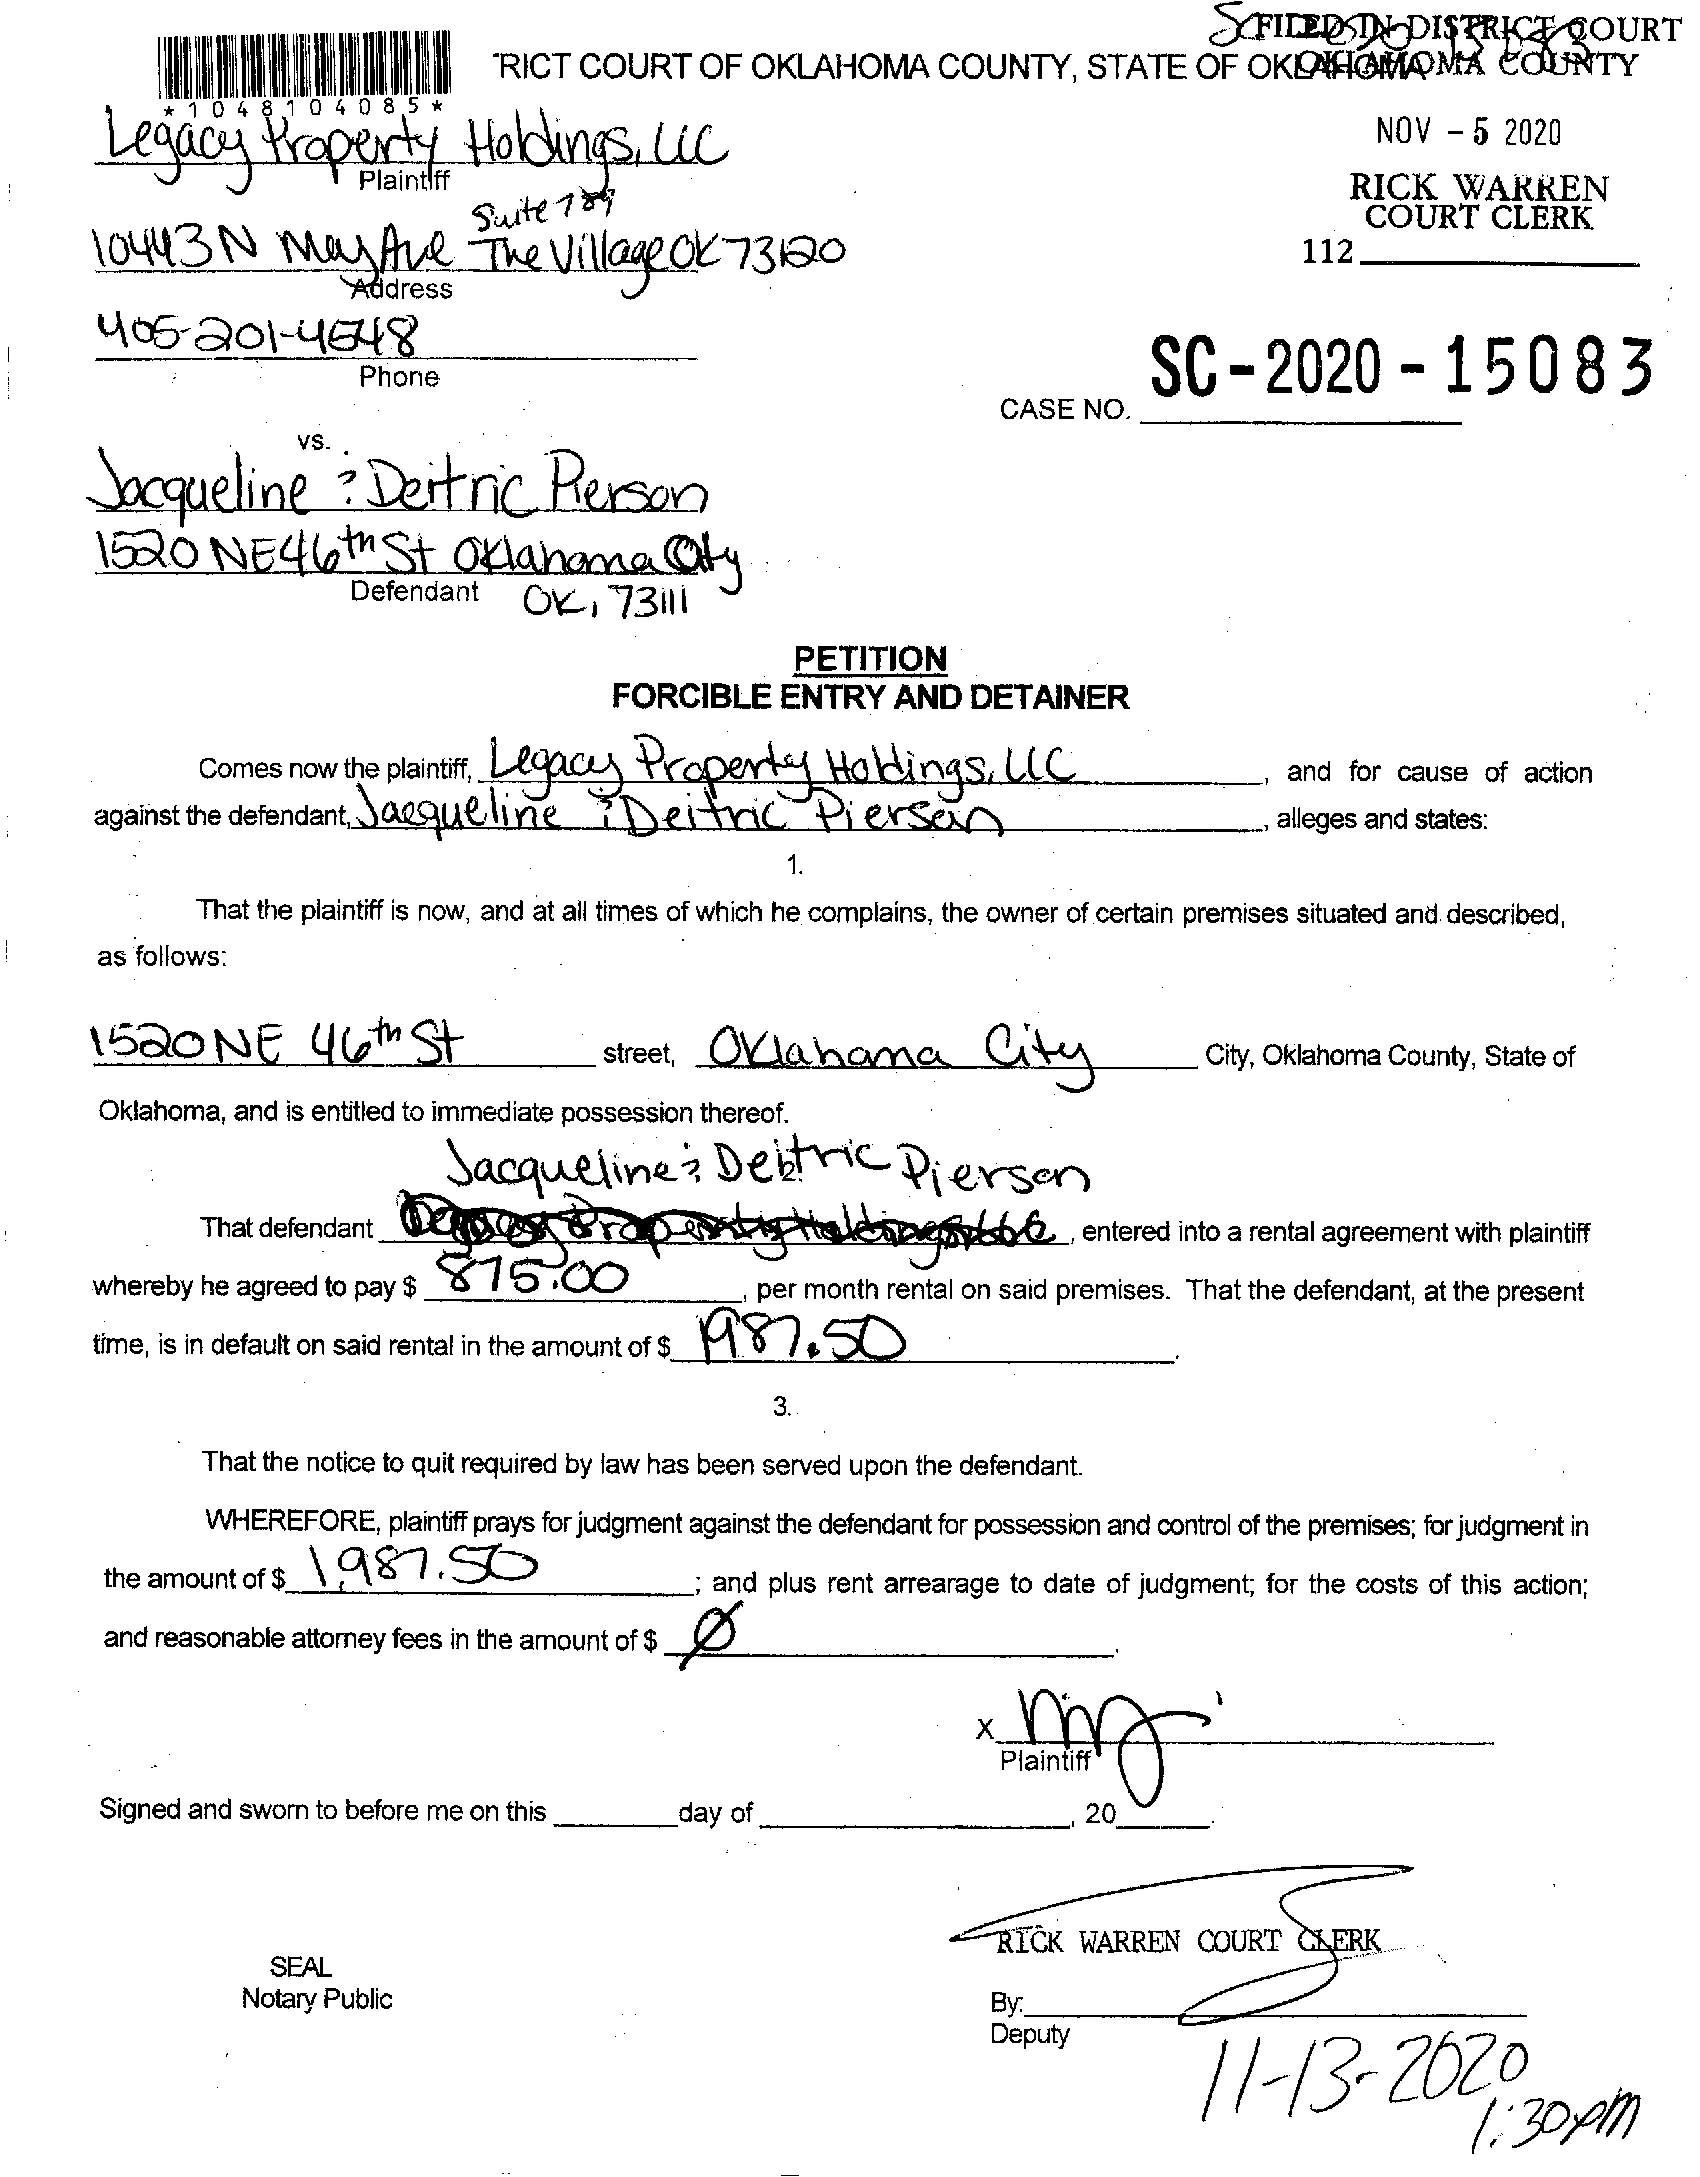 FILED IN DISTRICT COURT
OKLAHOMA COUNTY
*1048104085*
TRICT COURT OF OKLAHOMA COUNTY, STATE OF OKLAHOMA
NOV - 5 2020
RICK WARREN
COURT CLERK
112
Legacy Property Holdings, LLC
Plaintiff
Suite 189
10443 N May Ave The Village OK 73120
Address
405-201-4548
Phone
SC - 2020 - 15083
CASE NO.
vs.
Jacqueline & Deitric Pierson
1520 NE 46th St Oklahoma City
Defendant OK, 73111
PETITION
FORCIBLE ENTRY AND DETAINER
Comes now the plaintiff, Legacy Property Holdings, LLC, and for cause of action
against the defendant, Jacqueline & Deitric Pierson, alleges and states:
1.
That the plaintiff is now, and at all times of which he complains, the owner of certain premises situated and described,
as follows:
1520 NE 46th St street, Oklahoma City City, Oklahoma County, State of
Oklahoma, and is entitled to immediate possession thereof.
Jacqueline & Deitric Pierson
That defendant Legacy Property Holdings LLC, entered into a rental agreement with plaintiff
whereby he agreed to pay $ 875.00, per month rental on said premises. That the defendant, at the present
time, is in default on said rental in the amount of $ 1987.50.
3.
That the notice to quit required by law has been served upon the defendant.
WHEREFORE, plaintiff prays for judgment against the defendant for possession and control of the premises; for judgment in
the amount of $ 1,987.50; and plus rent arrearage to date of judgment; for the costs of this action;
and reasonable attorney fees in the amount of $ Ø.
X
Plaintiff
Signed and sworn to before me on this day of , 20 .
RICK WARREN COURT CLERK
SEAL
Notary Public
By:
Deputy
11-13-2020
1:30pm